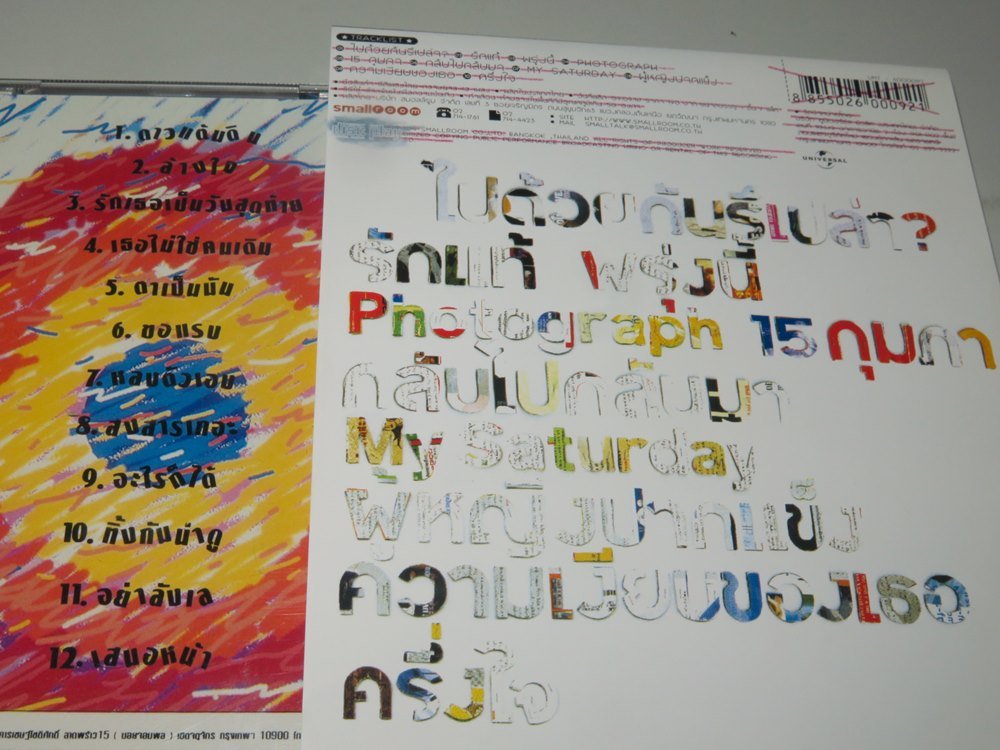 1. ดาวแต้มดิน
2. ล้างใจ
3. รักเธอเป็นวันสุดท้าย
4. เธอไม่ใช่คนเดิม
5. ตาเป็นมัน
6. ขอแรม
7. หลบตัวเอง
8. สงสารเถอะ
9. อะไรก็ได้
10. ทิ้งกันน่าดู
11. อย่าลังเล
12. เสนอหน้า
ลาดพร้าว15 ( จอมพล ) เขตจตุจักร กรุงเทพฯ 10900
★ TRACKLIST ★
ไปด้วยกันรึเปล่า? รักแท้ พรุ่งนี้ PHOTOGRAPH
15 กุมภา กลับไปกลับมา MY SATURDAY ผู้หญิงปากแข็ง
ความเงียบของเธอ ครึ่งใจ
smallroom 02 714-1761 02 714-4423 SITE HTTP://WWW.SMALLROOM.CO.TH
MAIL SMALLTALK@SMALLROOM.CO.TH
8 855026 000921
UNIVERSAL
ไปด้วยกันรึเปล่า?
รักแท้ พรุ่งนี้
Photograph 15 กุมภา
กลับไปกลับมา
My Saturday
ผู้หญิงปากแข็ง
ความเงียบของเธอ
ครึ่งใจ